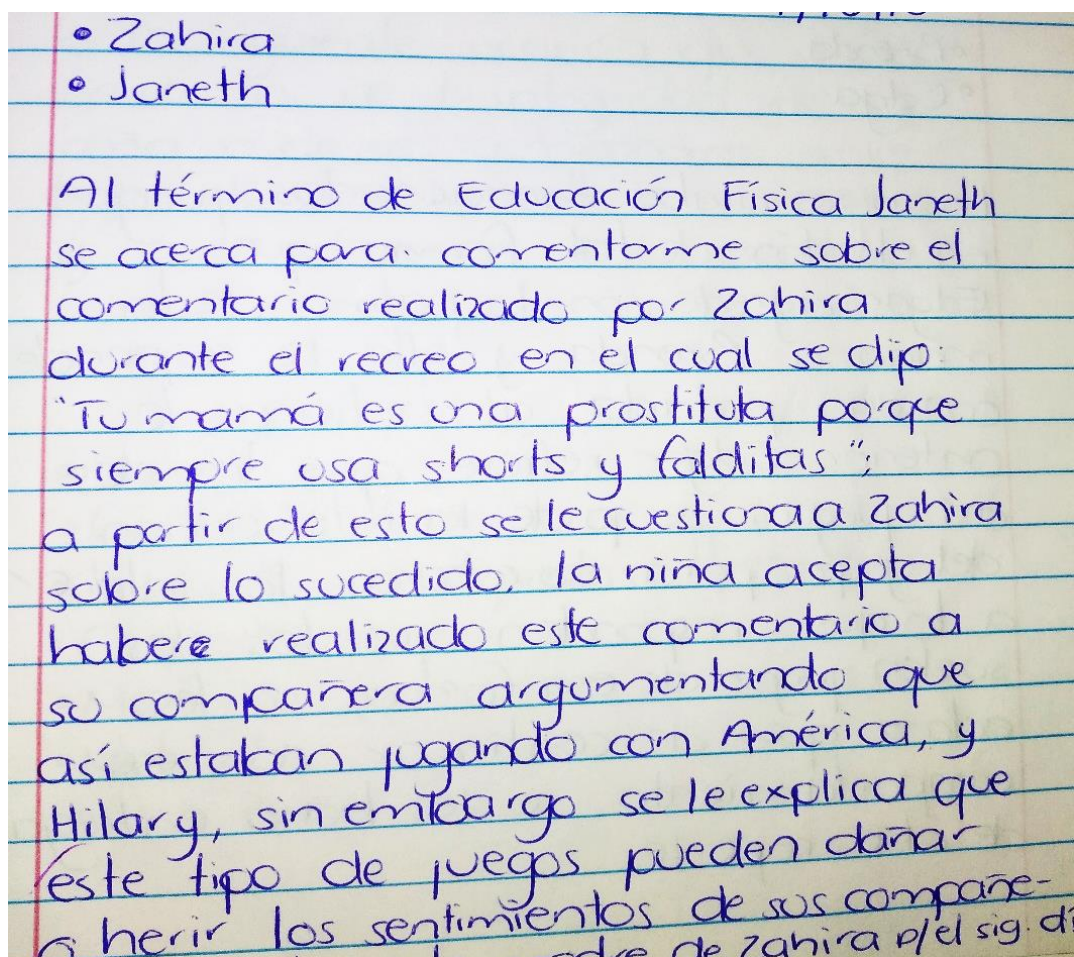 • Zahira
• Janeth
Al término de Educación Física Janeth
se acerca para comentarme sobre el
comentario realizado por Zahira
durante el recreo en el cual se dijo:
"Tu mamá es una prostituta porque
siempre usa shorts y falditas";
a partir de esto se le cuestiona a Zahira
sobre lo sucedido, la niña acepta
habere realizado este comentario a
su compañera argumentando que
así estaban jugando con América, y
Hilary, sin embargo se le explica que
este tipo de juegos pueden dañar
o herir los sentimientos de sus compañe-
de Zahira p/el sig. di